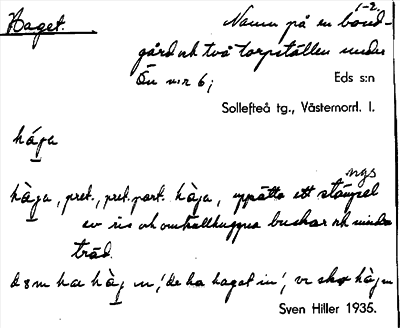 Haget.
1-2.
Namn på en bond-
gård och två torpställen under
Ön n:r 6;
Eds s:n
Sollefteå tg., Västernorrl. l.
hága
ngs
hàga, pret., pret. part. hàja, uppsätta ett stämpel
av ris och omkullhuggna buskar och mindre
träd.
dem ha hàg in, 'de ha hagat in', vi ska hàja
Sven Hiller 1935.